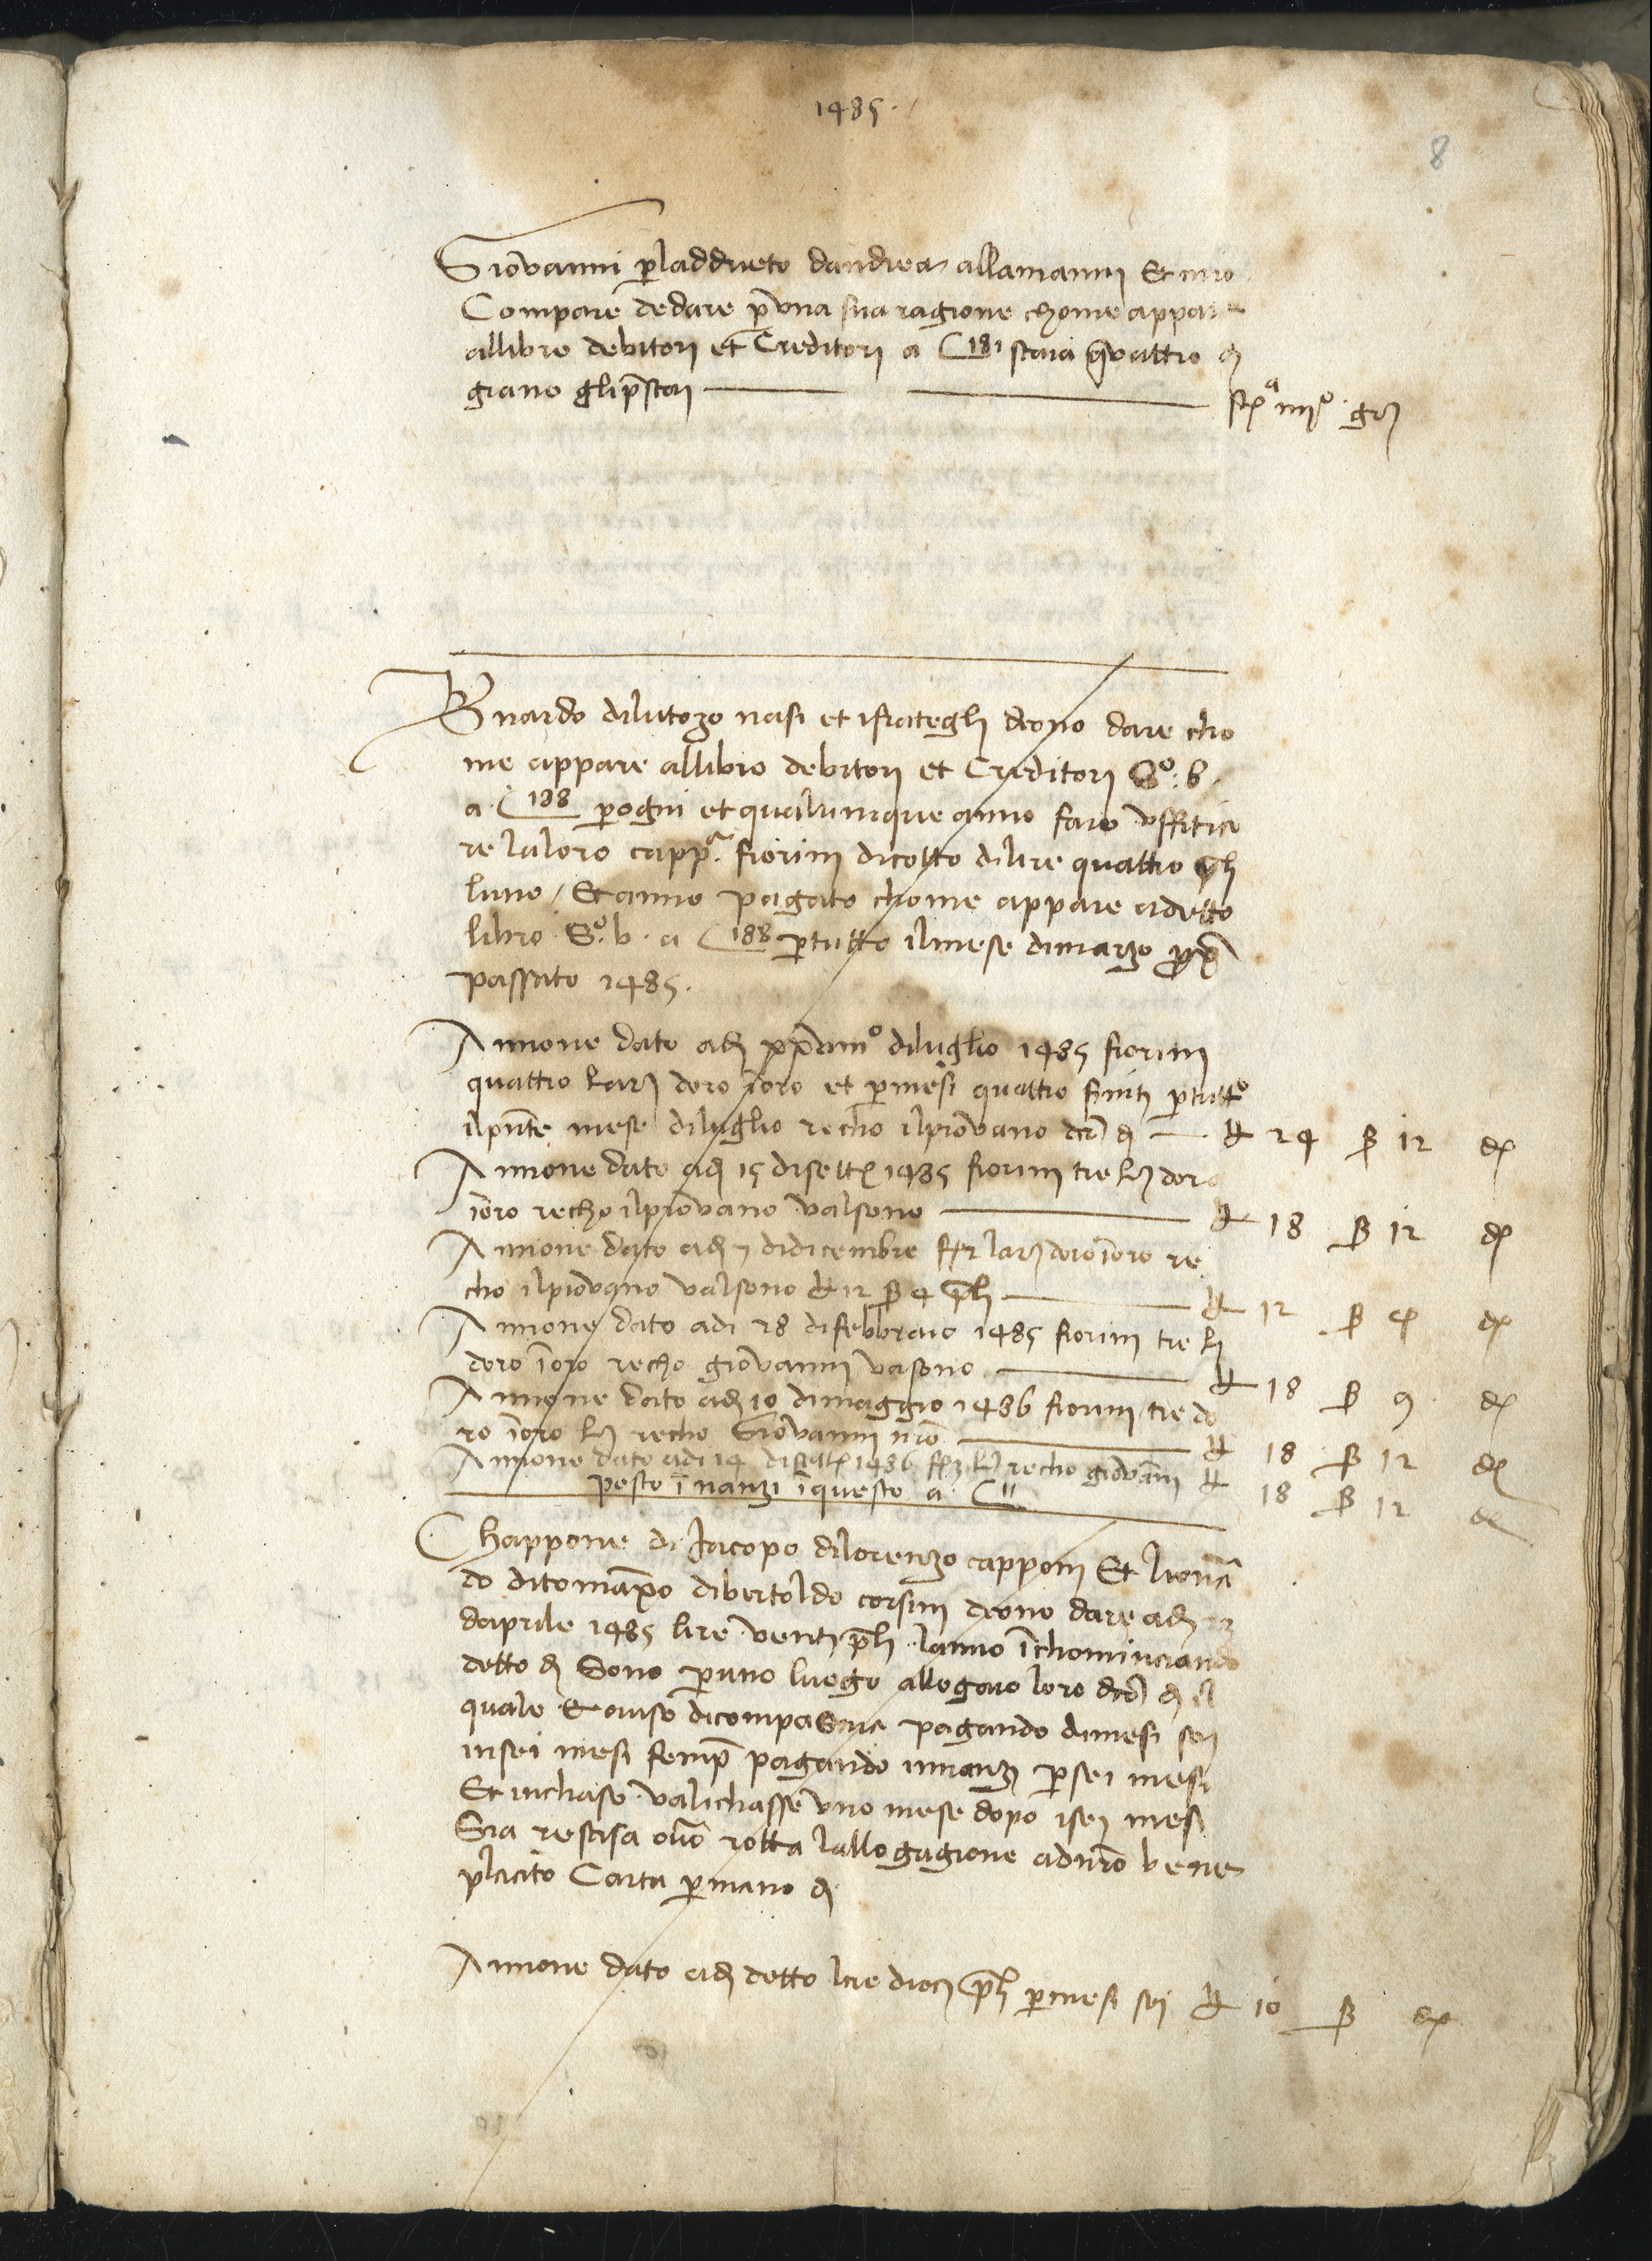 1485.
8
Giovanni perladdrieto dandrea allamanni Et mio
Compare de dare per una sua ragione chome appare
allibro debitori et Creditori a C 181 staia quattro di
grano gliprestai st^a iiij^o gr
Bnardo dilutozo nasi et ifrategli deono dare cho
me appare allibro debitori et Creditori S^o. b.
a C 188 per ogni et qualunique anno faro uffitia
re laloro capp^a. fiorini dicotto dilire quattro pli
luno / Et anno pagato chome appare adetto
libro S^o. b. a C 188 pertutto ilmese dimarzo
passato 1485.
Annone dato adi diluglio 1485 fiorini
quattro lar doro ioro et permesi quattro finiti pertutto
ilpnte mese diluglio recho ilpiovano £ 24 ß 12 d
Annone dato adi 15 disett 1485 fiorini tre l doro
ioro recho ilpiovano valsono £ 18 ß 12 d
Annone dato adi 7 didicembre f 2 lar doro ioro re
cho ilpiovano valsono £ 12 ß 4 pli £ 12 ß 4 d
Annone dato adi 28 difebbraio 1485 fiorini tre l
doro ioro recho giovanni vasono £ 18 ß 9 d
Annone dato adi 10 dimaggio 1486 fiorini tre do
ro ioro l recho Giovanni nro £ 18 ß 12 d
Annone dato adi 14 disett 1486 f 3 l recho giovani £ 18 ß 12 d
posto inanzi iquesto a C 11
Chappone di Jacopo dilorenzo capponi Et lionar
do ditomaxo dibertoldo corsini deono dare adi
daprile 1485 lire venti pli lanno ichominciando
detto di Sono peruno luogo allogato loro il
quale pagando dimesi sei
insei mesi semp pagando innanzi persei mesi
Et inchaso valichasse uno mese dopo isei mesi
Sia rescisa ovo rotta lallogagione adnro bene
placito Carta permano di
Annone dato adi detto lire dieci pli permesi sei £ 10 ß d